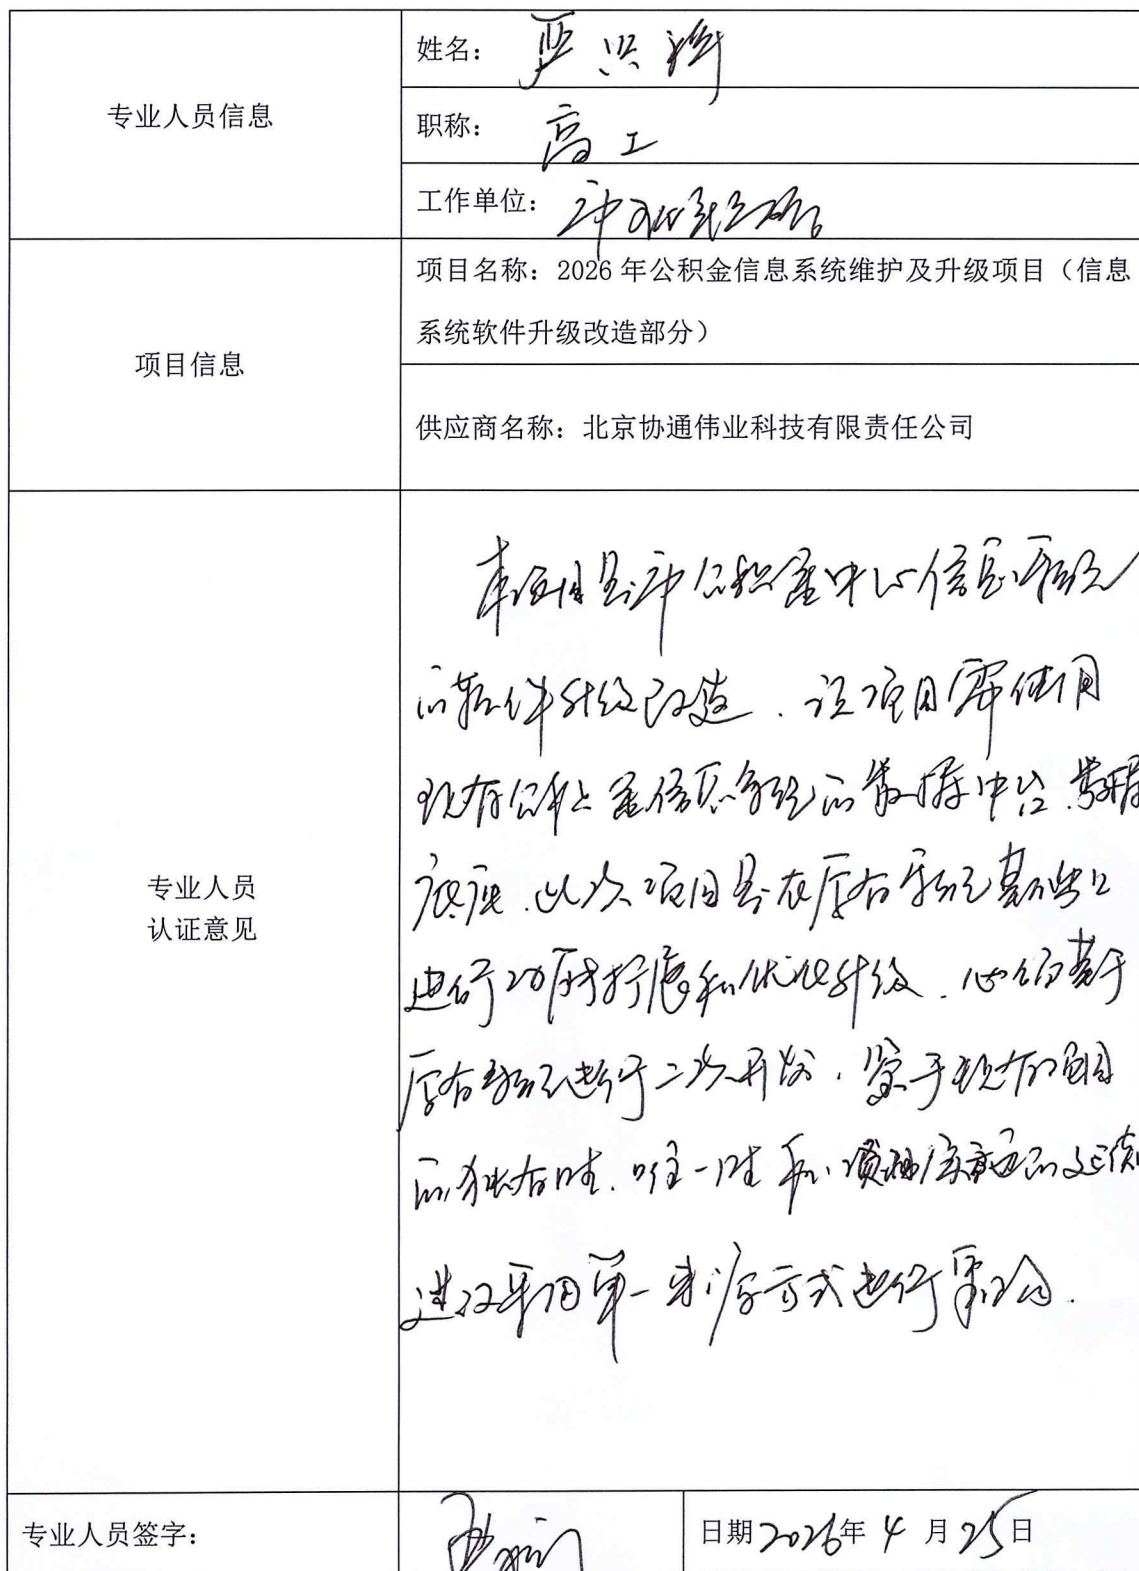 姓名：严洪
职称：高工
工作单位：
专业人员信息
项目名称：2026 年公积金信息系统维护及升级项目（信息
系统软件升级改造部分）
项目信息
供应商名称：北京协通伟业科技有限责任公司
本项目是市公积金中心信息系统
的软件升级改造．该项目需使用
现有公积金信息系统的数据中台．数据
底座．此次项目是在原有系统基础上
进行功能扩展和优化升级．必须基于
原有系统进行二次开发．鉴于现有项目
的独有性．唯一性和 的延续
建议采用单一来源方式进行采购．
专业人员
认证意见
专业人员签字：
日期 2026年 4 月 25日